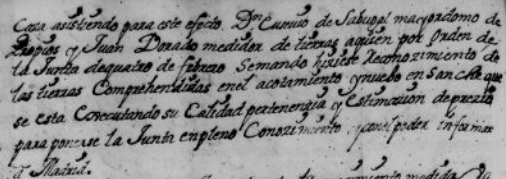 Casa asistiendo para este efecto. Dn Eusevio de Sabugal mayordomo de
Propios y Juan Dorado medidor de tierras aquien por orden de
la Juntta dequatro de febrero Semando hiziese Reconozimiento de
las tierras Comprehendidas enel acotamiento nuebo en San que
se esta Conecutando su Calidad pertenenzia y Estimazion de prezio
para ponerse la Junta enpleno Conozimiento yconelpoder informar
a Madrid.
medida